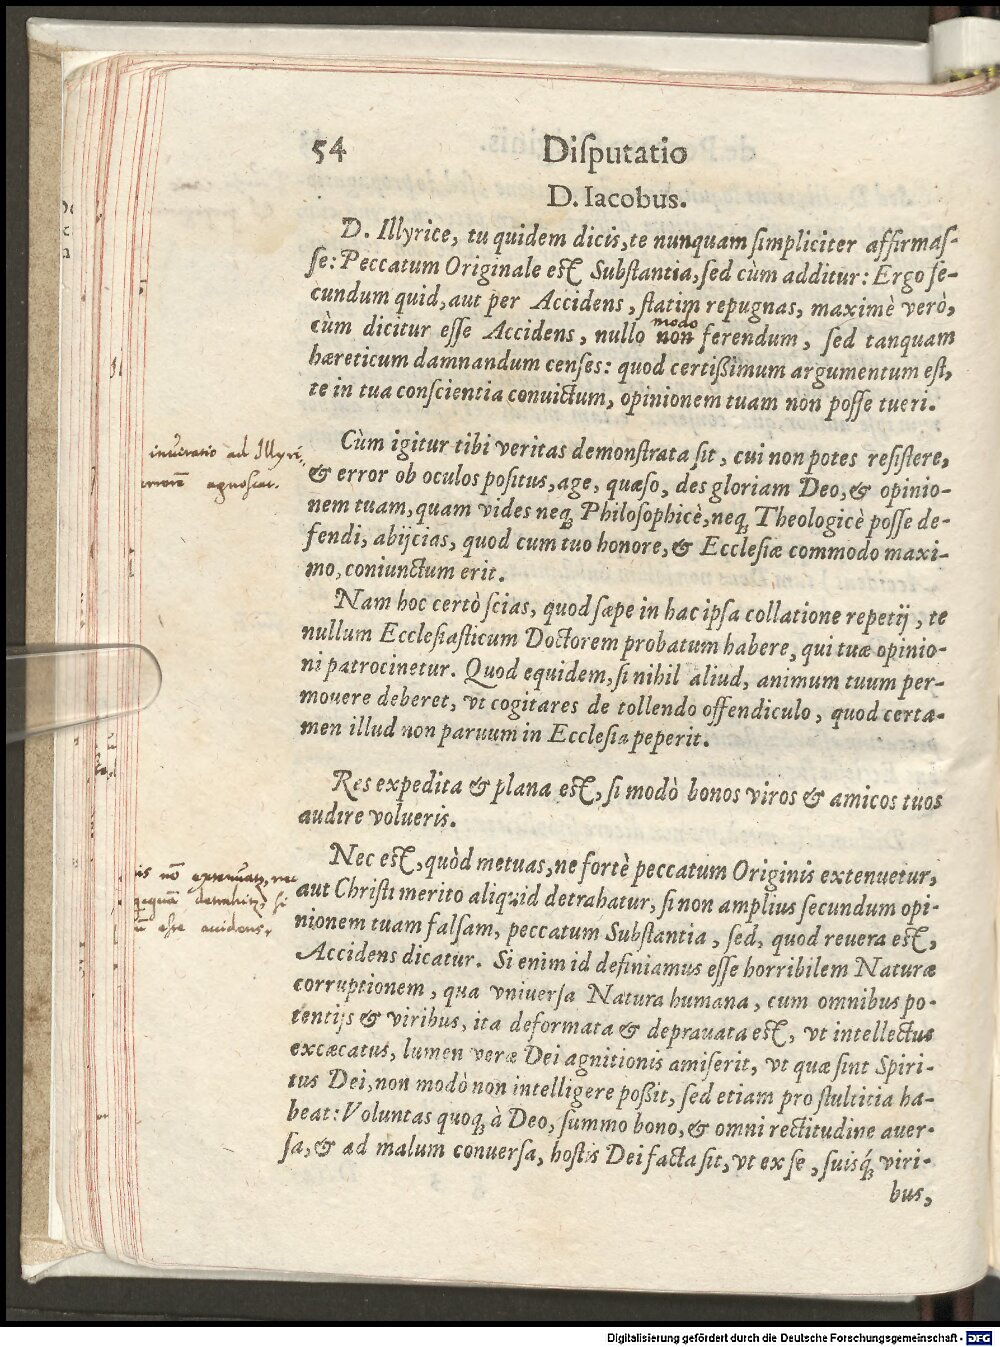 54 Diſputatio
D. Iacobus.
D. Illyrice, tu quidem dicis, te nunquam ſimpliciter affirmaſ-
ſe: Peccatum Originale eſt Subſtantia, ſed cùm additur: Ergo ſe-
cundum quid, aut per Accidens, ſtatim repugnas, maximè verò,
modo
cùm dicitur eſſe Accidens, nullo non ferendum, ſed tanquam
hæreticum damnandum cenſes: quod certißimum argumentum eſt,
te in tua conſcientia conuictum, opinionem tuam non poſſe tueri.
Cùm igitur tibi veritas demonſtrata ſit, cui non potes reſiſtere,
& error ob oculos poſitus, age, quæſo, des gloriam Deo, & opinio-
nem tuam, quam vides neq; Philoſophicè, neq; Theologicè poſſe de-
fendi, abijcias, quod cum tuo honore, & Eccleſiæ commodo maxi-
mo, coniunctum erit.
Nam hoc certò ſcias, quod ſæpe in hac ipſa collatione repetij, te
nullum Eccleſiaſticum Doctorem probatum habere, qui tuæ opinio-
ni patrocinetur. Quod equidem, ſi nihil aliud, animum tuum per-
mouere deberet, vt cogitares de tollendo offendiculo, quod certa-
men illud non paruum in Eccleſia peperit.
Res expedita & plana eſt, ſi modò bonos viros & amicos tuos
audire volueris.
Nec eſt, quòd metuas, ne fortè peccatum Originis extenuetur,
aut Chriſti merito aliquid detrahatur, ſi non amplius ſecundum opi-
nionem tuam falſam, peccatum Subſtantia, ſed, quod reuera eſt,
Accidens dicatur. Si enim id definiamus eſſe horribilem Naturæ
corruptionem, qua vniuerſa Natura humana, cum omnibus po-
tentijs & viribus, ita deformata & deprauata eſt, vt intellectus
excæcatus, lumen veræ Dei agnitionis amiſerit, vt quæ ſint Spiri-
tus Dei, non modò non intelligere poßit, ſed etiam pro ſtultitia ha-
beat: Voluntas quoq; à Deo, ſummo bono, & omni rectitudine auer-
ſa, & ad malum conuerſa, hoſtis Dei facta ſit, vt ex ſe, ſuisq́; viri-
bus,
ad Illyri
agnoſcat.
nō extenuatr, nec
detrahitr, ſi
eſſe accidens.
Digitalisierung gefördert durch die Deutsche Forschungsgemeinschaft - DFG